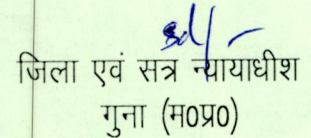 sd/-
जिला एवं सत्र न्यायाधीश
गुना (म0प्र0)